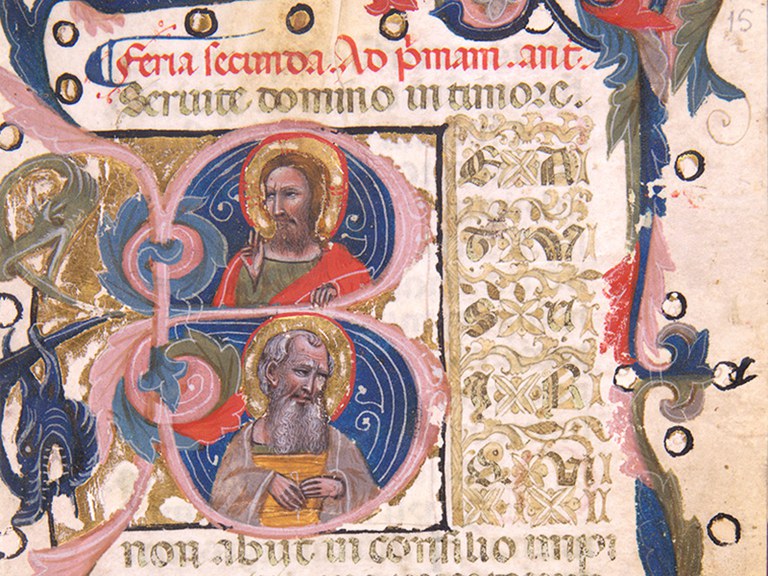 15
Feria secunda. Ad p̄mam. ant.
Seruite domino in timore.
B
E A
T V
S U
I R
non abiit in consilio impi